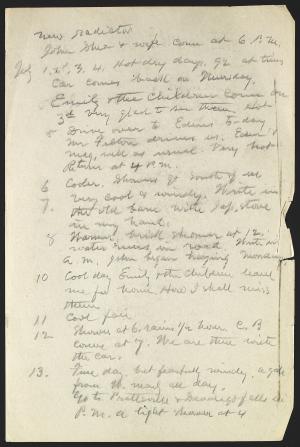 New radiator
John Shea & wife come at 6 P.M.
July 1, 2, 3, 4. Hot dry days. 92 at times
Car comes back on Thursday.
Emily & the Children come on
3d Very glad to see them. Hot
Drive over to to-day
Mr drives us.
well as usual. Very hot
Return at 4 P.M.
6 Cooler. Showers South of us
7. Very cool & windy. Write in
the old barn with
in my hand.
8 Warmer, brisk shower at 12,
water runs in road. Write in
A.M. John began haying Monday
10 Cool day Emily & the children leave
me for home How I shall miss
them
11 Cool fair
12. Shower at 6, rains 1/2 hour C. B
comes at 7. We are there with
the car.
13. Fine day, but fearfully windy, a gale
from N. all day.
Go to Prattsville & falls in
P.M. a light shower at 4